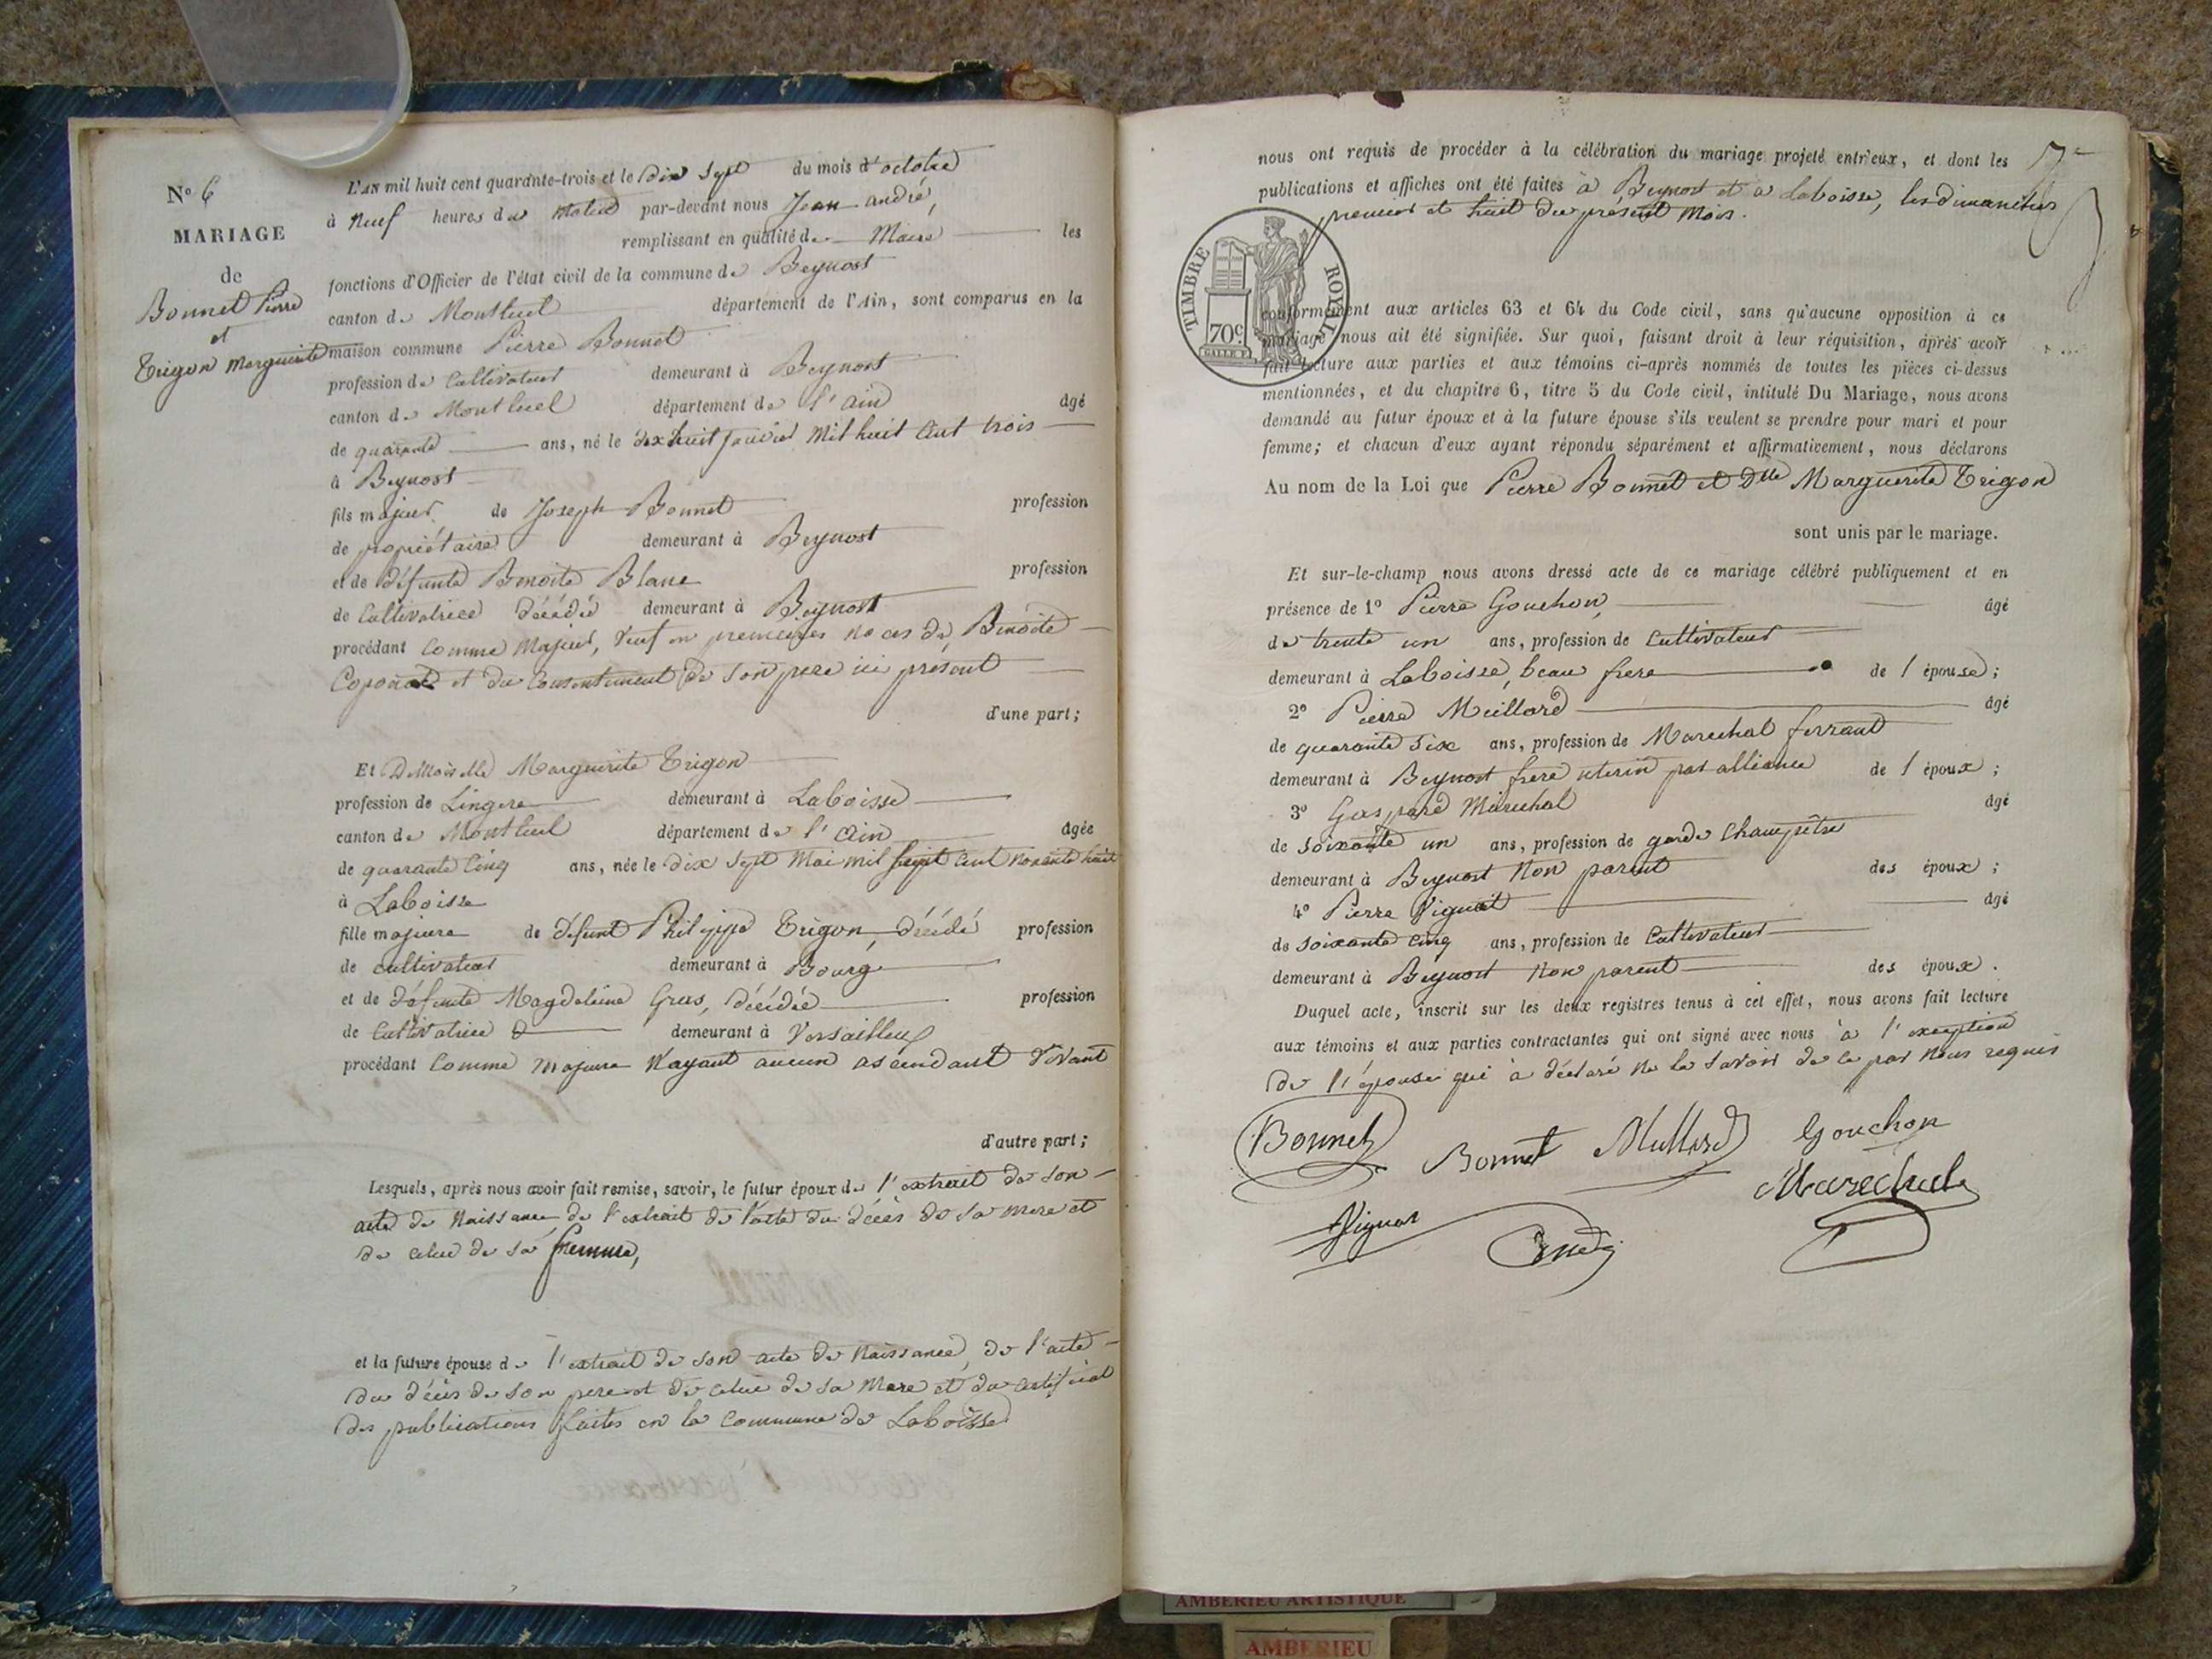 N° 6
MARIAGE
de
Bonnet Pierre
et
Trigon Marguerite
L'AN mil huit cent quarante-trois et le dix sept du mois d'octobre
à Neuf heures du matin par-devant nous Jean andré,
remplissant en qualité de Maire les
fonctions d'Officier de l'état civil de la commune de Beynost
canton de Montluel département de l'Ain, sont comparus en la
maison commune Pierre Bonnet
profession de Cultivateur demeurant à Beynost
canton de Montluel département de l'ain âgé
de quarante ans, né le dix huit janvier Mil huit Cent trois
à Beynost
fils majeur de Joseph Bonnet profession
de propriétaire demeurant à Beynost
et de défunte Benoite Blanc profession
de Cultivatrice décédée demeurant à Beynost
procédant Comme Majeur, Veuf en premieres noces de Benoite
et du Consentement de Son pere ici présent
d'une part;
Et Demoiselle Marguerite Trigon
profession de Lingere demeurant à Laboisse
canton de Montluel département de l'ain âgée
de quarante Cinq ans, née le dix sept Mai mil sept Cent nonante huit
à Laboisse
fille majeure de défunt Philippe Trigon, décédé profession
de cultivateur demeurant à Bourg
et de défunte Magdeleine Gras, décédée profession
de Cultivatrice demeurant à Versailleux
procédant Comme majeure N'ayant aucun ascendant Vivant
d'autre part;
Lesquels, après nous avoir fait remise, savoir, le futur époux de l'extrait de son
acte de Naissance, de l'extrait de l'acte du décès de sa mere et
de celui de sa femme,
et la future épouse de l'extrait de son acte de Naissance, de l'acte
du décès de son pere et de celui de sa Mere et du certificat
des publications faites en la Commune de Laboisse
nous ont requis de procéder à la célébration du mariage projeté entr'eux, et dont les
publications et affiches ont été faites à Beynost et à Laboisse, les dimanches
premier et huit du présent mois.
TIMBRE ROYAL
70c
conformément aux articles 63 et 64 du Code civil, sans qu'aucune opposition à ce
mariage nous ait été signifiée. Sur quoi, faisant droit à leur réquisition, après avoir
fait lecture aux parties et aux témoins ci-après nommés de toutes les pièces ci-dessus
mentionnées, et du chapitre 6, titre 5 du Code civil, intitulé Du Mariage, nous avons
demandé au futur époux et à la future épouse s'ils veulent se prendre pour mari et pour
femme; et chacun d'eux ayant répondu séparément et affirmativement, nous déclarons
Au nom de la Loi que Pierre Bonnet et Dlle Marguerite Trigon
sont unis par le mariage.
Et sur-le-champ nous avons dressé acte de ce mariage célébré publiquement et en
présence de 1° Pierre Gouchon, âgé
de trente un ans, profession de Cultivateur
demeurant à Laboisse, beau frere de l'épouse;
2° Pierre Meillard âgé
de quarante Six ans, profession de Marechal ferrant
demeurant à Beynost frere uterin par alliance de l'époux;
3° Gaspard Maréchal âgé
de soixante un ans, profession de garde Champêtre
demeurant à Beynost Non parent des époux;
4° Pierre Vignat âgé
de soixante cinq ans, profession de Cultivateur
demeurant à Beynost Non parent des époux.
Duquel acte, inscrit sur les deux registres tenus à cet effet, nous avons fait lecture
aux témoins et aux parties contractantes qui ont signé avec nous à l'exception
de l'épouse qui a déclaré ne le savoir de ce par Nous requis
Bonnet Bonnet Gouchon
Marechal
Vignat André
AMBERIEU ARTISTIQUE
AMBERIEU